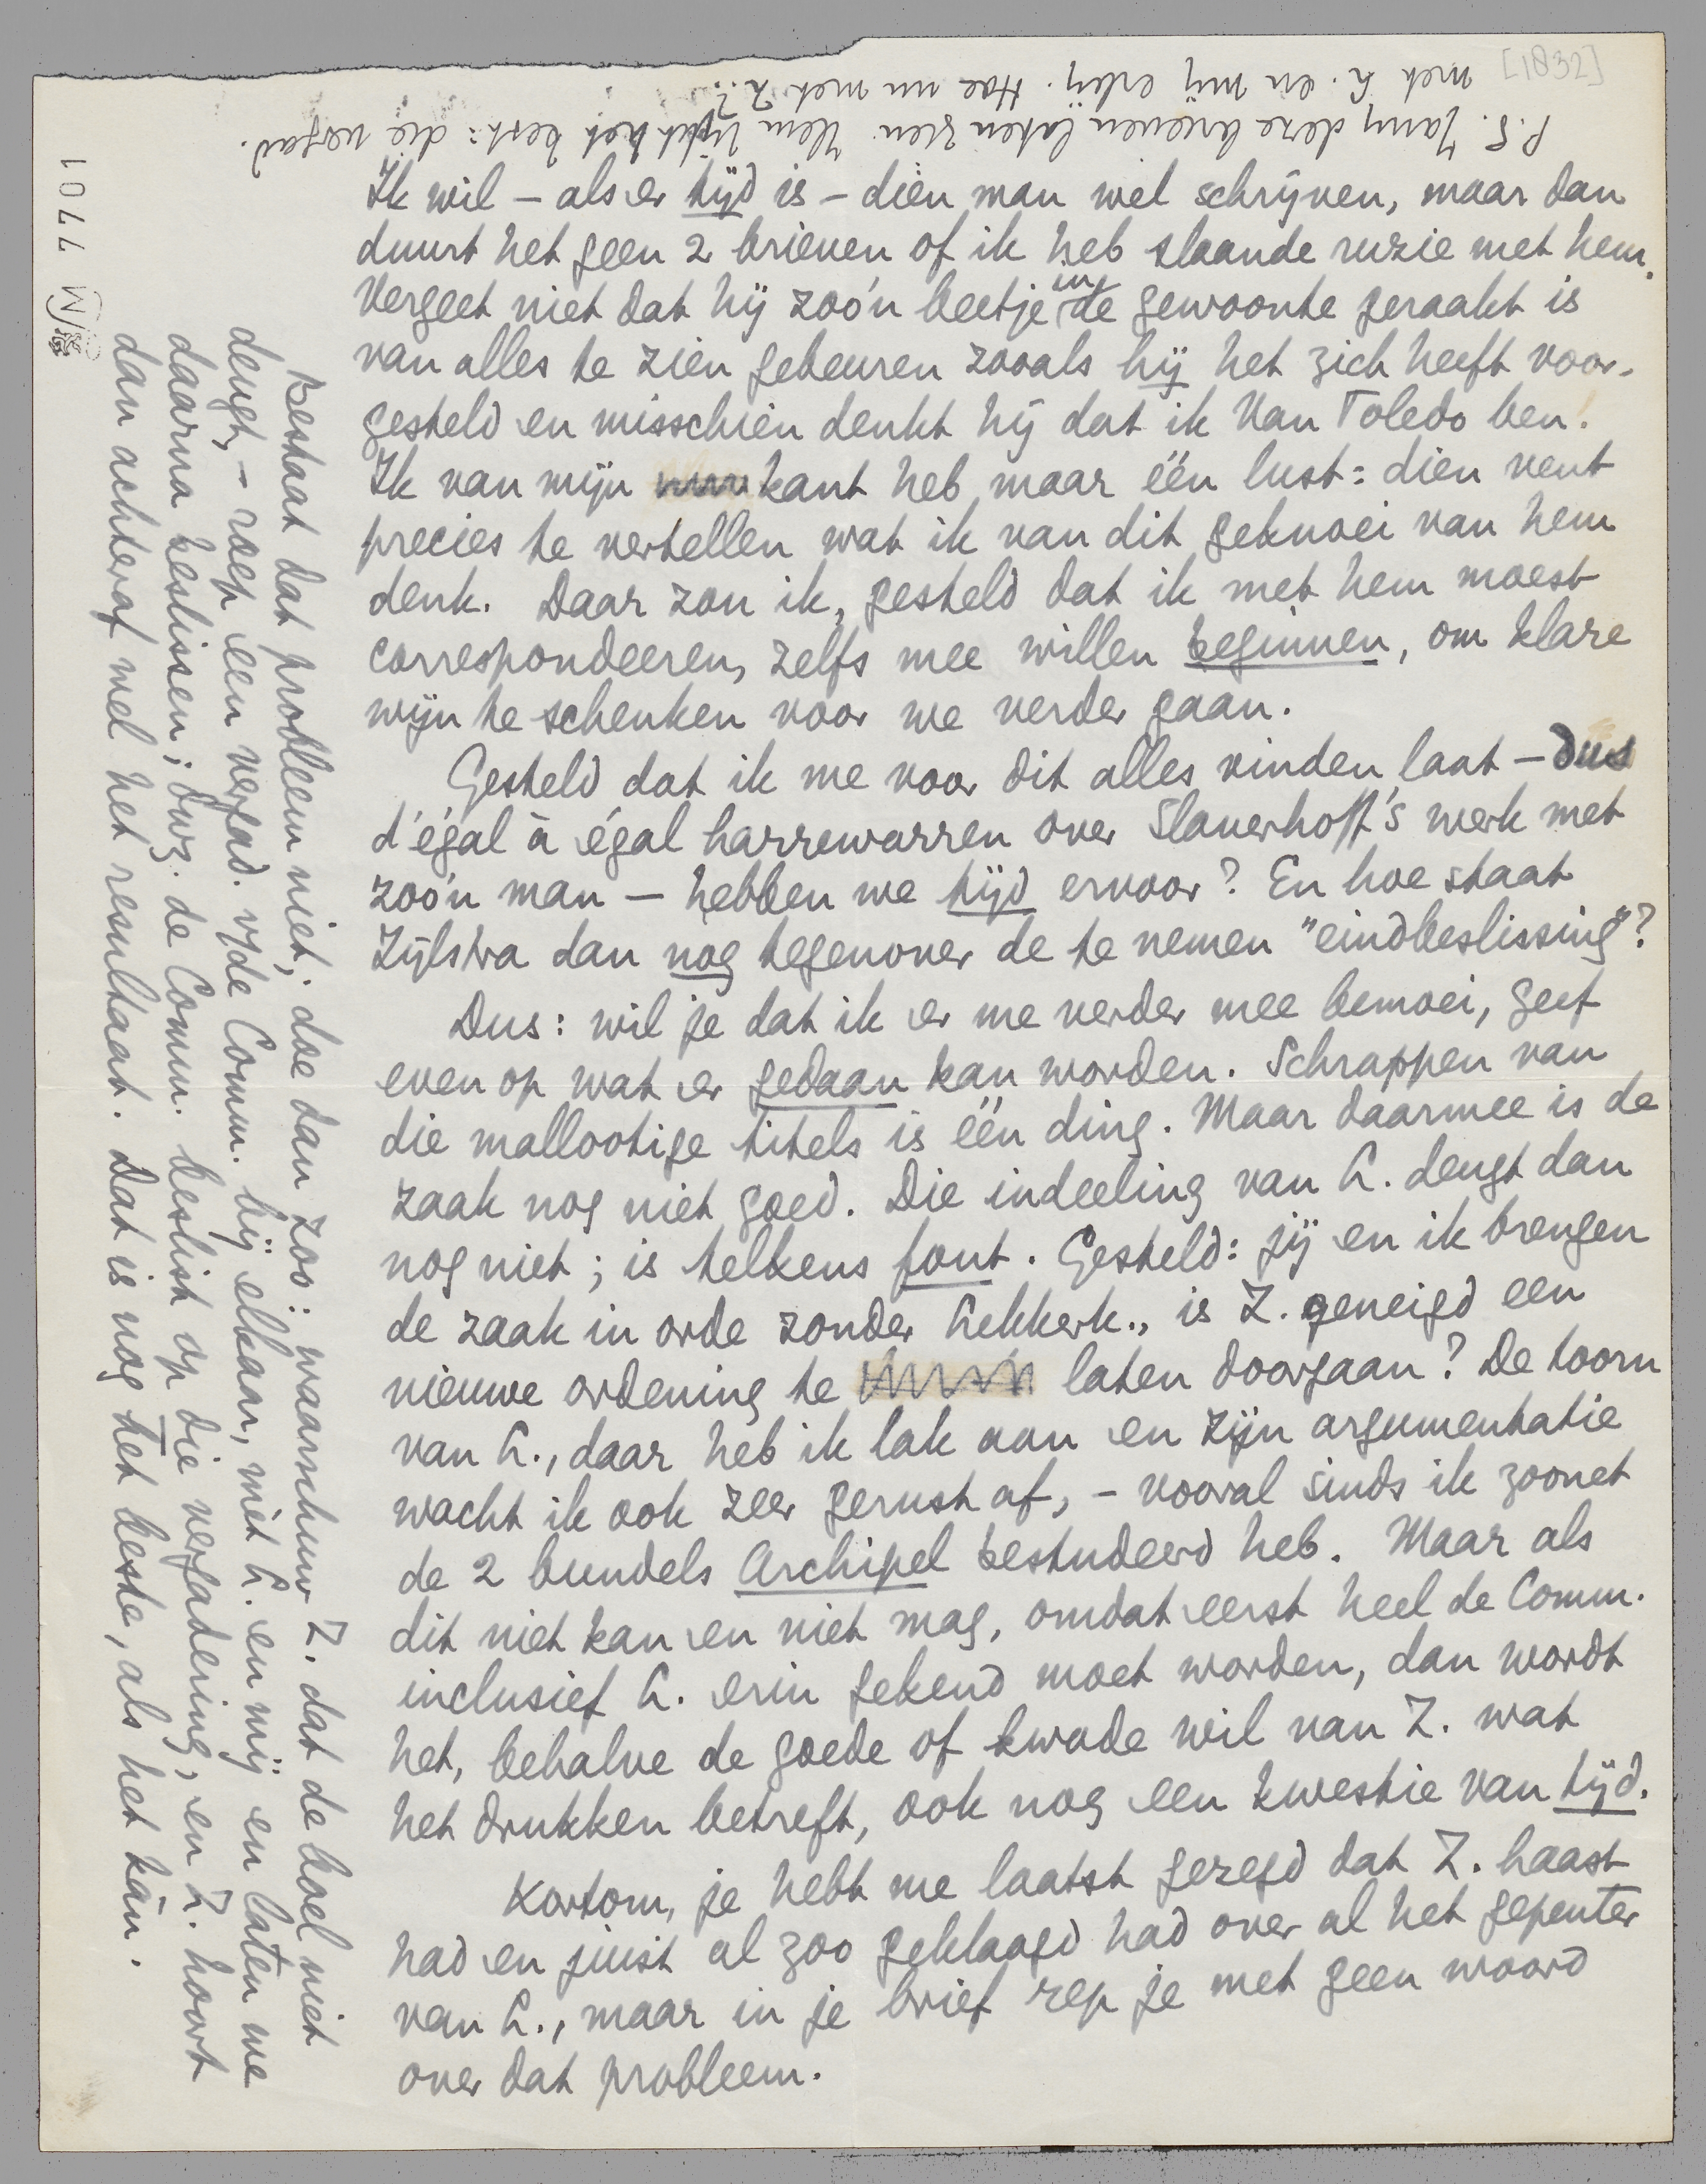 [1832]
Ik wil – als er tijd is – dien man wel schrijven, maar dan
duurt het geen 2 brieven of ik heb slaande ruzie met hem.
Vergeet niet dat hij zoo'n beetje in de gewoonte geraakt is
van alles te zien gebeuren zooals hij het zich heeft voor-
gesteld en misschien denkt hij dat ik Van Toledo ben!
Ik van mijn kant heb maar één lust: dien vent
precies te vertellen wat ik van dit geknoei van hem
denk. Daar zou ik, gesteld dat ik met hem moest
correspondeeren, zelfs mee willen beginnen, om klare
wijn te schenken voor we verder gaan.
Gesteld dat ik me voor dit alles vinden laat – dus
d'égal à égal harrewarren over Slauerhoff's werk met
zoo'n man – hebben we tijd ervoor? En hoe staat
Zijlstra dan nog tegenover de te nemen "eindbeslissing"?
Dus: wil je dat ik er me verder mee bemoei, geef
even op wat er gedaan kan worden. Schrappen van
die mallootige titels is één ding. Maar daarmee is de
zaak nog niet goed. Die indeeling van L. deugt dan
nog niet; is telkens fout. Gesteld: jij en ik brengen
de zaak in orde zonder Lekkerk., is Z. geneigd een
nieuwe ordening te laten doorgaan? De toorn
van L., daar heb ik lak aan en zijn argumentatie
wacht ik ook zeer gerust af, – vooral sinds ik zoonet
de 2 bundels Archipel bestudeerd heb. Maar als
dit niet kan en niet mag, omdat eerst heel de Comm.
inclusief L. erin gekend moet worden, dan wordt
het, behalve de goede of kwade wil van Z. wat
het drukken betreft, ook nog een kwestie van tijd.
Kortom, je hebt me laatst gezegd dat Z. haast
had en juist al zoo geklaagd had over al het gepeuter
van L., maar in je brief rep je met geen woord
over dat probleem.
Bestaat dat probleem niet, doe dan zoo: waarschuw Z. dat de boel niet
deugt, – roep een vergad. v/de Comm. bij elkaar, mèt L. en mij en laten we
daarna beslissen; d.w.z. de Comm. beslist op die vergadering, en Z. hoort
dan achteraf wel het resultaat. Dat is nog het beste, als het kàn.
P.S. Jany deze brieven laten zien. Hem lijkt het best: die vergad.
met L. en mij erbij. Hoe nu met Z.?
1077 M